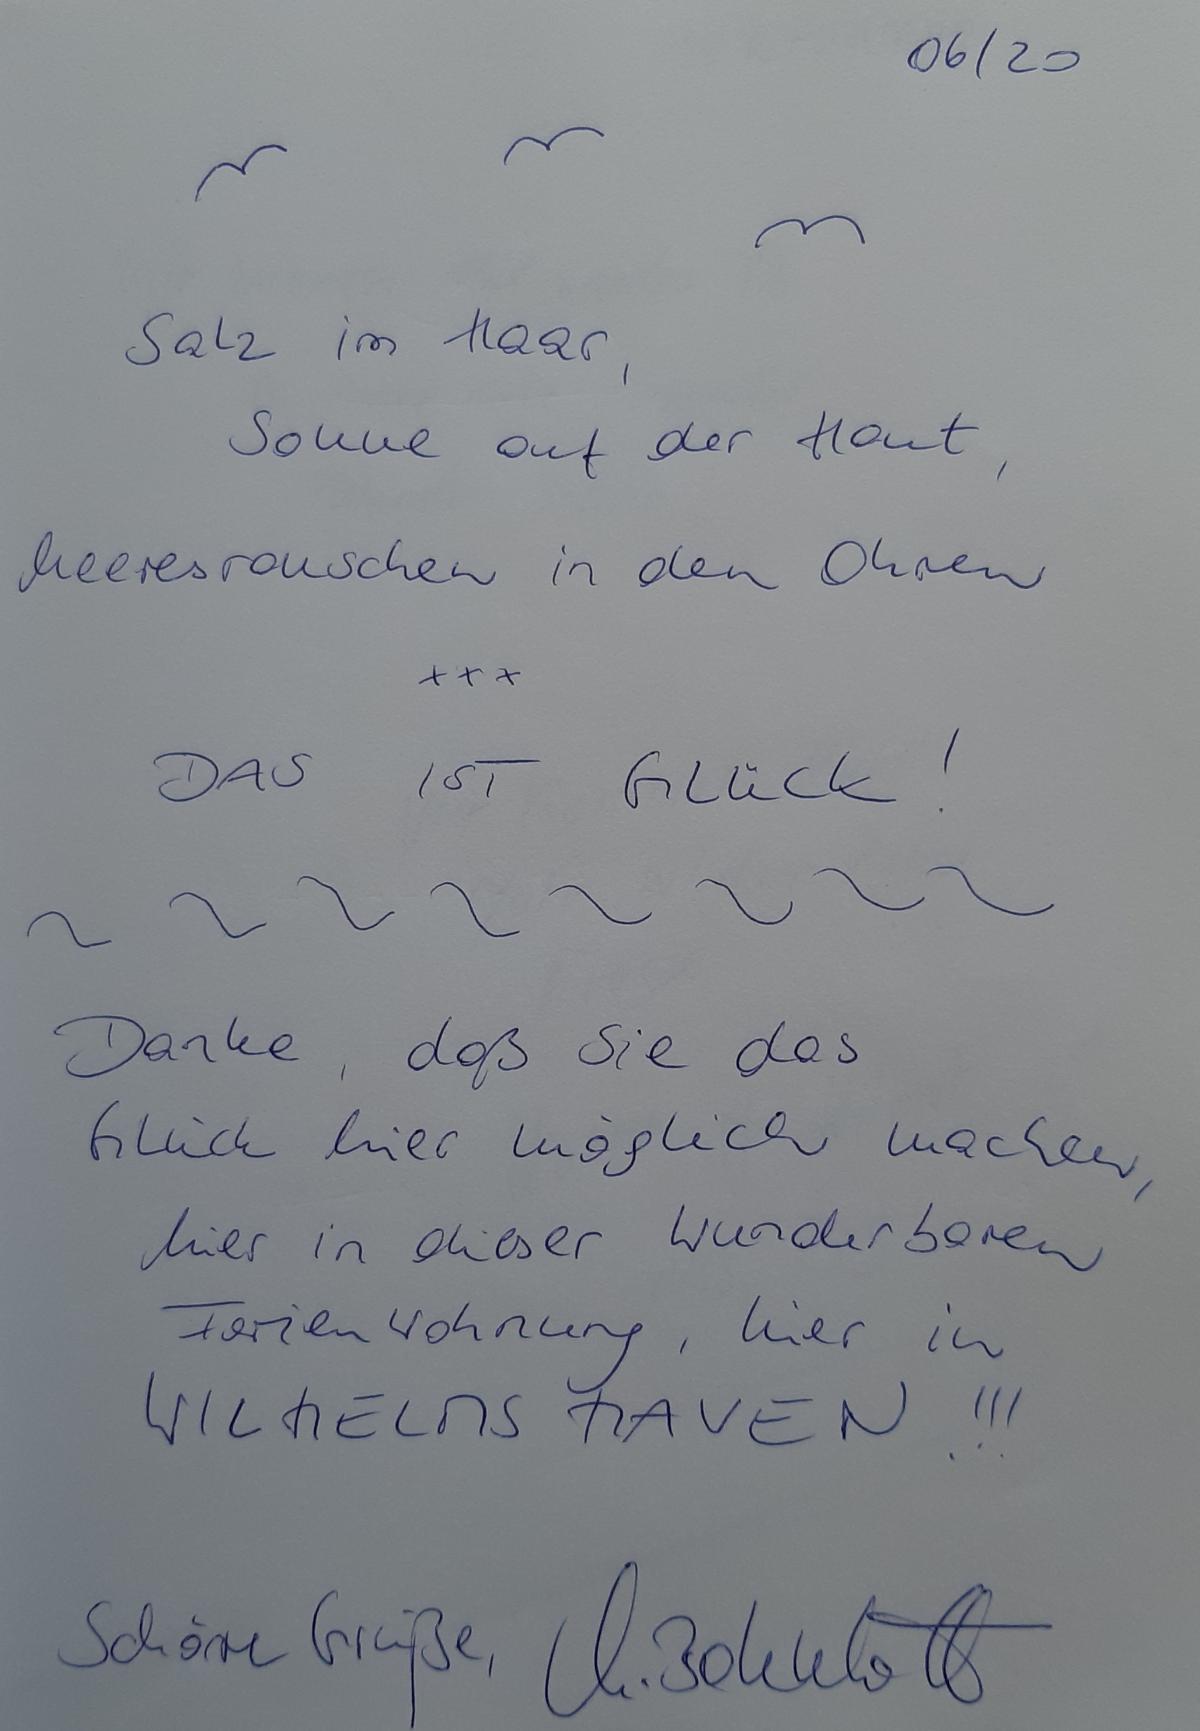 06/20
Salz im Haar,
Sonne auf der Haut,
Meeresrauschen in den Ohren
+++
DAS IST GLÜCK!
Danke, daß Sie das
Glück hier möglich machen,
hier in dieser wunderbaren
Ferienwohnung, hier in
WILHELMSHAVEN!!!
Schöne Grüße,